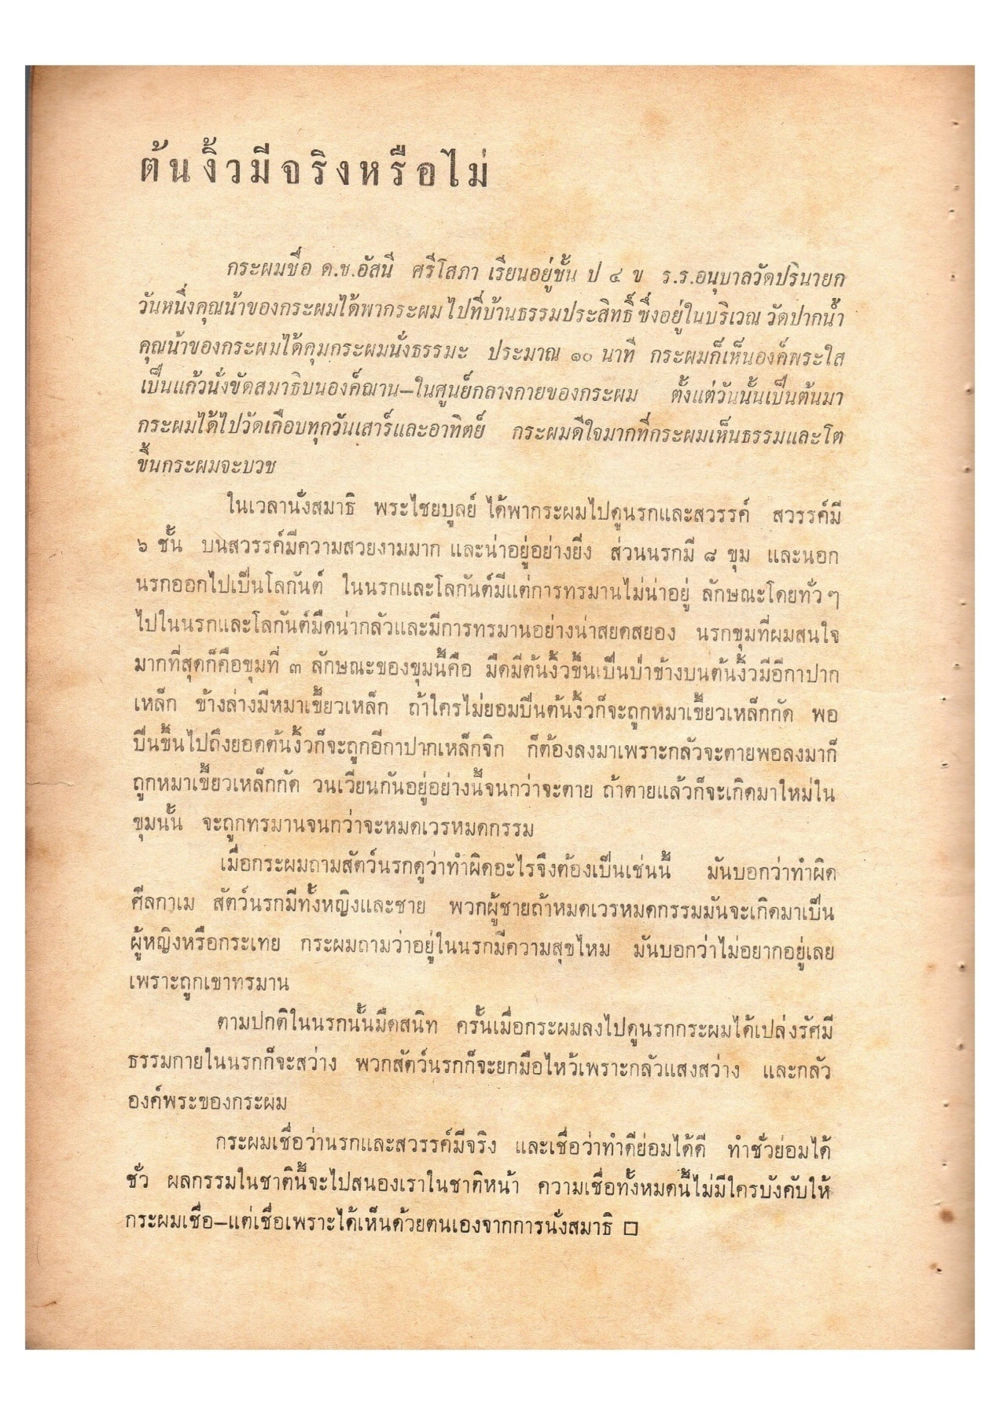 ต้นงิ้วมีจริงหรือไม่
กระผมชื่อ ด.ช.อัสนี ศรีโสภา เรียนอยู่ชั้น ป ๔ ข ร.ร.อนุบาลวัดปรินายก
วันหนึ่งคุณน้าของกระผมได้พากระผมไปที่บ้านธรรมประสิทธิ์ ซึ่งอยู่ในบริเวณ วัดปากน้ำ
คุณน้าของกระผมได้คุมกระผมนั่งธรรมะ ประมาณ ๑๐ นาที กระผมก็เห็นองค์พระใส
เป็นแก้วนั่งขัดสมาธิบนองค์ฌาน–ในศูนย์กลางกายของกระผม ตั้งแต่วันนั้นเป็นต้นมา
กระผมได้ไปวัดเกือบทุกวันเสาร์และอาทิตย์ กระผมดีใจมากที่กระผมเห็นธรรมและโต
ขึ้นกระผมจะบวช
ในเวลานั่งสมาธิ พระไชยบูลย์ ได้พากระผมไปดูนรกและสวรรค์ สวรรค์มี
๖ ชั้น บนสวรรค์มีความสวยงามมาก และน่าอยู่อย่างยิ่ง ส่วนนรกมี ๘ ขุม และนอก
นรกออกไปเป็นโลกันต์ ในนรกและโลกันต์มีแต่การทรมานไม่น่าอยู่ ลักษณะโดยทั่วๆ
ไปในนรกและโลกันต์มืดน่ากลัวและมีการทรมานอย่างน่าสยดสยอง นรกขุมที่ผมสนใจ
มากที่สุดก็คือขุมที่ ๓ ลักษณะของขุมนี้คือ มืดมีต้นงิ้วขึ้นเป็นป่าข้างบนต้นงิ้วมีอีกาปาก
เหล็ก ข้างล่างมีหมาเขี้ยวเหล็ก ถ้าใครไม่ยอมปีนต้นงิ้วก็จะถูกหมาเขี้ยวเหล็กกัด พอ
ปีนขึ้นไปถึงยอดต้นงิ้วก็จะถูกอีกาปากเหล็กจิก ก็ต้องลงมาเพราะกลัวจะตายพอลงมาก็
ถูกหมาเขี้ยวเหล็กกัด วนเวียนกันอยู่อย่างนี้จนกว่าจะตาย ถ้าตายแล้วก็จะเกิดมาใหม่ใน
ขุมนั้น จะถูกทรมานจนกว่าจะหมดเวรหมดกรรม
เมื่อกระผมถามสัตว์นรกดูว่าทำผิดอะไรจึงต้องเป็นเช่นนี้ มันบอกว่าทำผิด
ศีลกาเม สัตว์นรกมีทั้งหญิงและชาย พวกผู้ชายถ้าหมดเวรหมดกรรมมันจะเกิดมาเป็น
ผู้หญิงหรือกระเทย กระผมถามว่าอยู่ในนรกมีความสุขไหม มันบอกว่าไม่อยากอยู่เลย
เพราะถูกเขาทรมาน
ตามปกติในนรกนั้นมืดสนิท ครั้นเมื่อกระผมลงไปดูนรกกระผมได้เปล่งรัศมี
ธรรมกายในนรกก็จะสว่าง พวกสัตว์นรกก็จะยกมือไหว้เพราะกลัวแสงสว่าง และกลัว
องค์พระของกระผม
กระผมเชื่อว่านรกและสวรรค์มีจริง และเชื่อว่าทำดีย่อมได้ดี ทำชั่วย่อมได้
ชั่ว ผลกรรมในชาตินี้จะไปสนองเราในชาติหน้า ความเชื่อทั้งหมดนี้ไม่มีใครบังคับให้
กระผมเชื่อ–แต่เชื่อเพราะได้เห็นด้วยตนเองจากการนั่งสมาธิ □